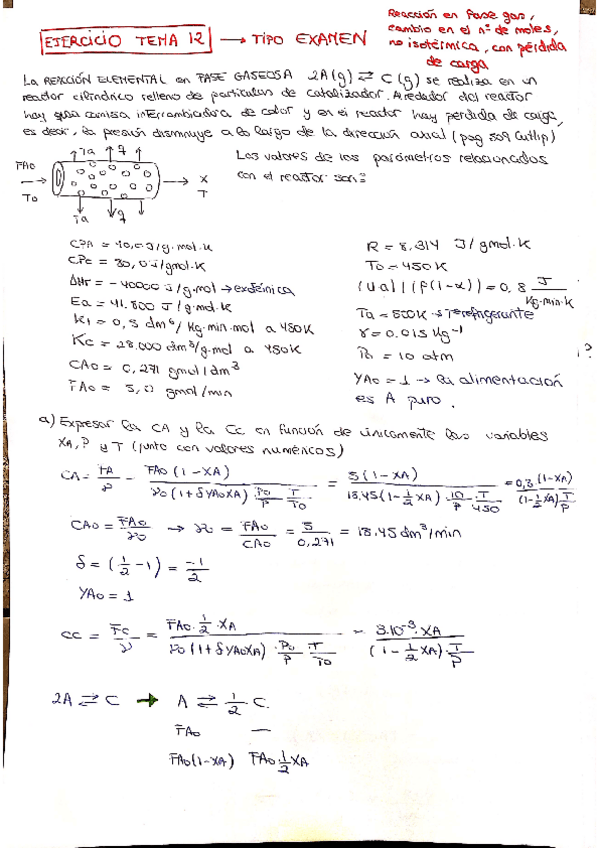 EJERCICIO TEMA 12 → TIPO EXAMEN
Reacción en fase gas,
cambio en el nº de moles,
no isotérmica, con pérdida
de carga
La REACCIÓN ELEMENTAL en FASE GASEOSA 2A(g) ⇄ C(g) se realiza en un
reactor cilíndrico relleno de partículas de catalizador. Alrededor del reactor
hay una camisa intercambiadora de calor y en el reactor hay pérdida de carga,
es decir, la presión disminuye a lo largo de la dirección axial (pag 509 Cutlip)
Ta q
FAo
To
X
T
Ta q
Los valores de los parámetros relacionados
con el reactor son:
CPA = 40,0 J/g·mol·K
CPc = 80,0 J/gmol·K
ΔHr = -40000 J/g·mol → exotérmica
Ea = 41.800 J/g·mol·K
K1 = 0,5 dm⁶/Kg·min·mol a 450K
Kc = 25.000 dm³/g·mol a 450K
CAo = 0,271 gmol/dm³
FAo = 5,0 gmol/min
R = 8,314 J/gmol·K
To = 450K
(Ua)/(ρ(1-α)) = 0,8 J/Kg·min·K
Ta = 500K → T refrigerante
γ = 0.015 Kg⁻¹
Po = 10 atm
YAo = 1 → la alimentación
es A puro.
?
a) Expresar la CA y la Cc en función de únicamente las variables
XA, P y T (junto con valores numéricos)
CA = FA/ν = FAo(1-XA)/(νo(1+δYAoXA)·Po/P·T/To) = 5(1-XA)/(18.45(1-½XA)·10/P·T/450) = 0,3·(1-XA)/((1-½XA)T/P)
CAo = FAo/νo → νo = FAo/CAo = 5/0,271 = 18.45 dm³/min
δ = (½-1) = -1/2
YAo = 1
CC = Fc/ν = FAo·½XA/(νo(1+δYAoXA)·Po/P·T/To) = 3·10⁻³·XA/((1-½XA)·T/P)
2A ⇄ C → A ⇄ ½C.
FAo —
FAo(1-XA) FAo½XA